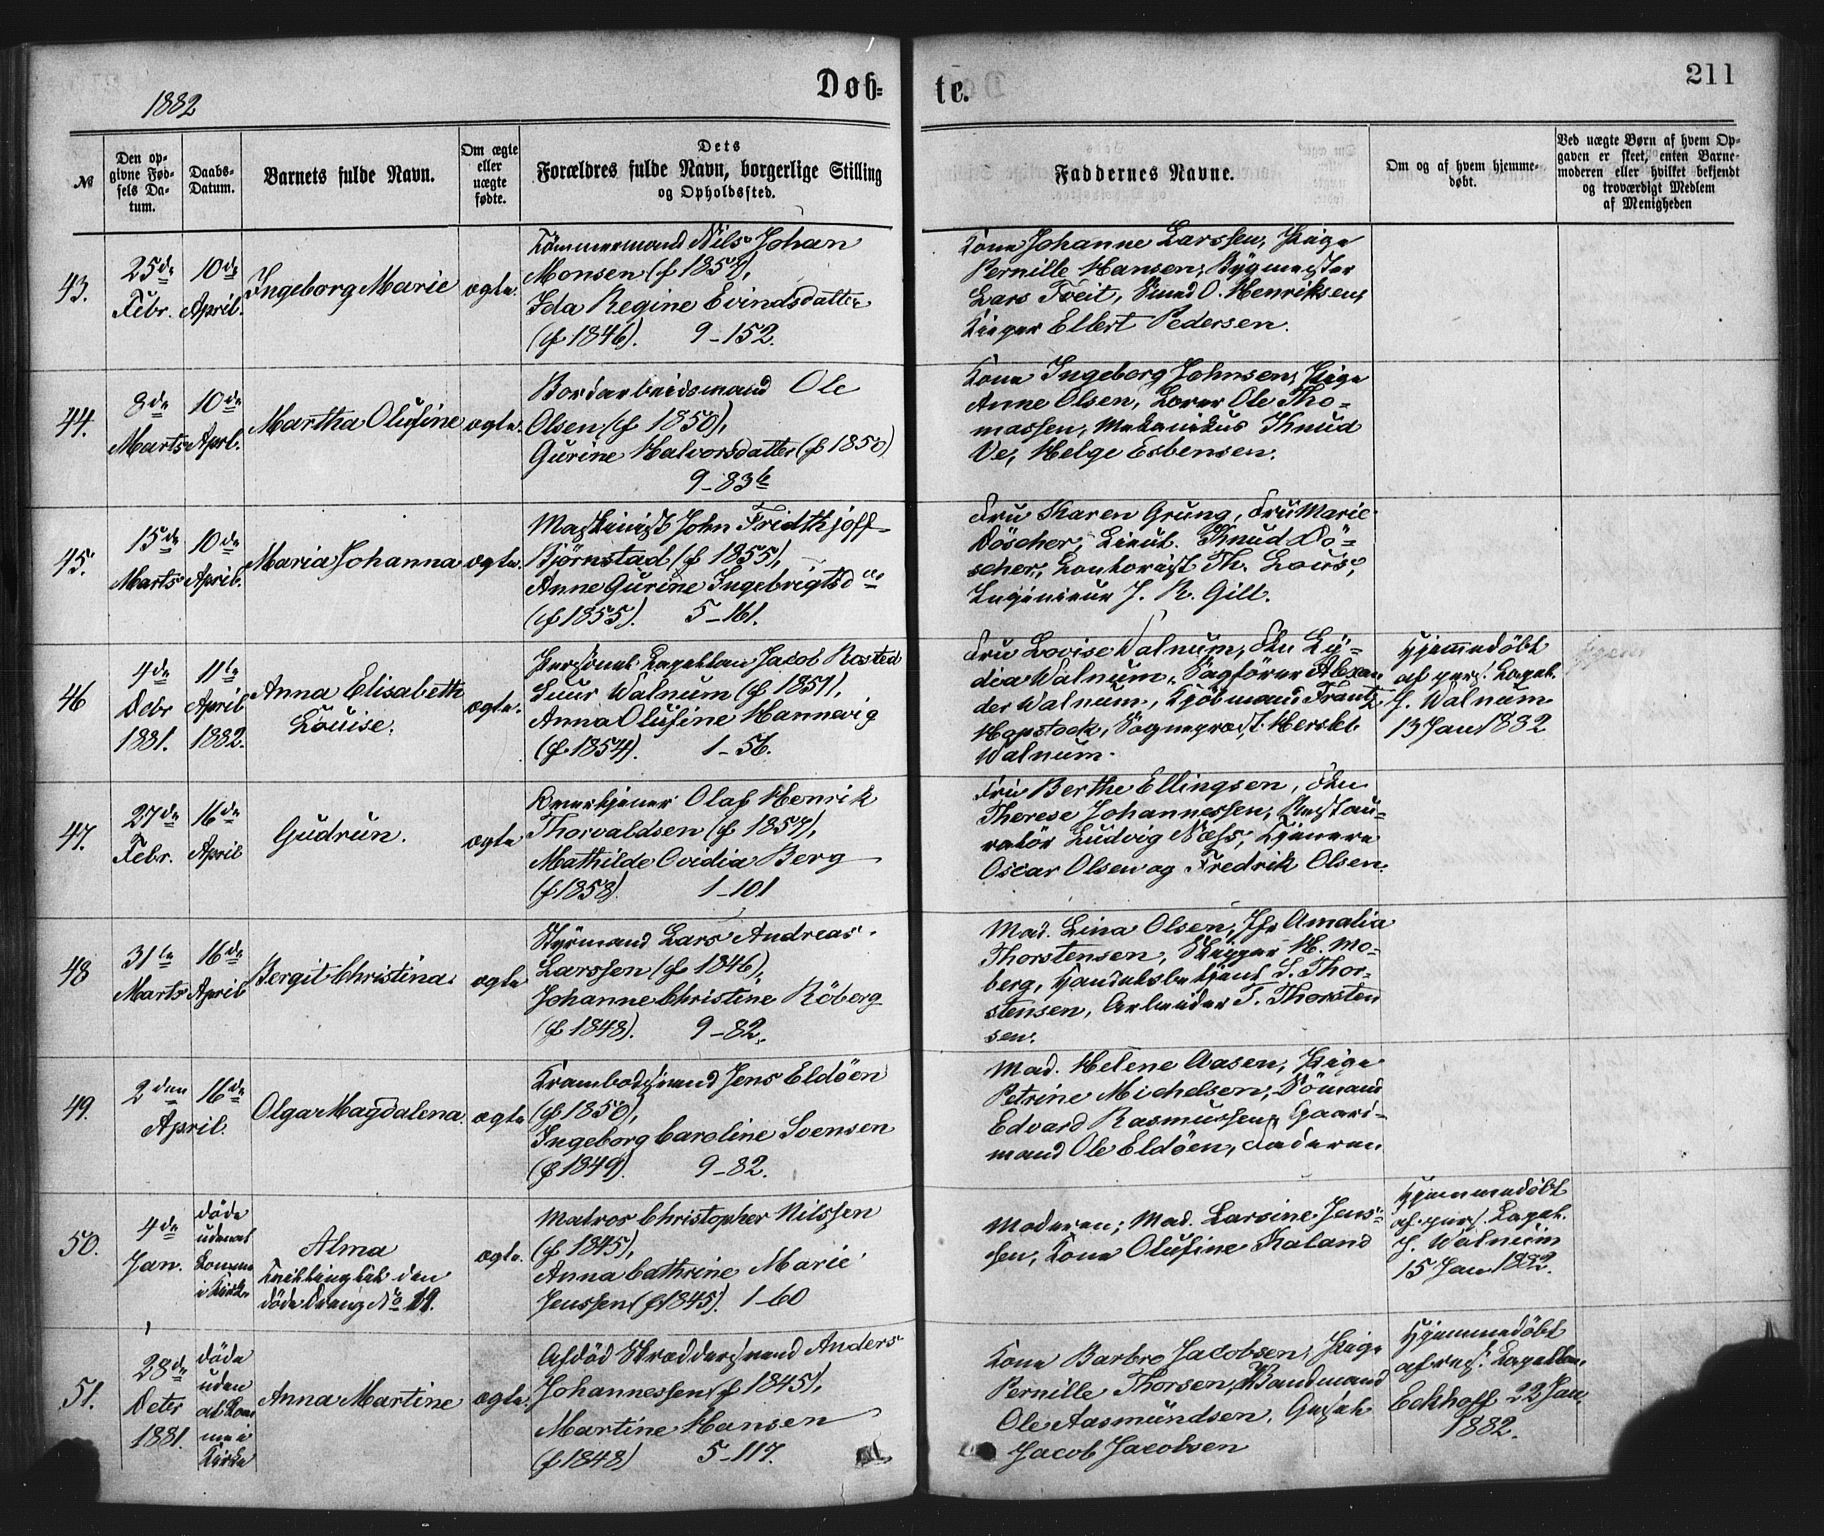 1882
Døb-
te.
211
№
Den op-
givne Fød-
sels Da-
tum.
Daabs-
Datum.
Barnets fulde Navn.
Om ægte
eller
uægte
fødte.
Dets
Forældres fulde Navn, borgerlige Stilling
og Opholdssted.
Faddernes Navne.
Om og af hvem hjemme-
døbt.
Ved uægte Børn af hvem Op-
gaven er skeet, enten Barne-
moderen eller hvilket bekjendt
og troværdigt Medlem
af Menigheden
43.
25de
Febr.
10de
April.
Ingeborg Marie
ægte.
Tömmermand Nils Johan
Monsen (f 1857),
Ida Regine Evindsdatter
(f 1846). 9-152.
Kone Johanne Larssen, Pige
Pernille Hansen, Bygmester
Lars Tveit, Smed O. Henriksen,
Ellert Pedersen.
44.
8de
Marts
10de
Aprl.
Martha Olufine
ægte.
Bordarbeidsmand Ole
Olsen (f 1850),
Gurine Halvorsdatter (f 1850)
9-83b
Kone Ingeborg Johnsen, Pige
Anne Olsen, Ole Tho-
massen, Mekanikus Knud
Ve, Helge Esbensen.
45.
15de
Marts
10de
April.
Maria Johanna
ægte.
Maskinist John Fridthjoff
Björnstad (f 1855),
Anne Gurine Ingebrigtsd
(f 1855). 5-161.
Fru Karen Grung, Fru Marie
Döscher, Lieut. Knud Dö-
scher, Kontorist Th. Lous,
Ingenieur J. R. Gill.
46
4de
Debr
1881.
11te
April
1882.
Anna Elisabeth
Louise.
ægte.
Personel Kapellan Jacob Rosted
Suur Walnum (f 1851),
Anna Olufine Hannevig
(f 1854). 1-56.
Fru Lovise Walnum, Frk Ly-
dia Walnum, Sagförer Alexan
der Walnum, Kjöbmand Frantz
Hopstock, Sogneprest Herskl.
Walnum.
Hjemmedöbt
af pers. Kapel.
J. Walnum
13 Jan 1882
47.
27de
Febr.
16de
April
Gudrun.
ægte
Overtjener Olaf Henrik
Thorvaldsen (f 1857),
Mathilde Ovidia Berg
(f 1858). 1-101
Fru Berthe Ellingsen, Frk
Therese Johannessen, Restau-
ratör Ludvig Næss, Tjenere
Oscar Olsen og Fredrik Olsen.
48
31te
Marts
16de
April
Bergit Christina.
ægte
Styrmand Lars Andreas
Larssen (f 1846),
Johanne Christine Röberg
(f 1848). 9-82.
Mad. Lina Olsen, Jfr Amalia
Thorstensen, Skipper H. Mo-
berg, Handelsbetjent S. Thor-
stensen, Arbeider T. Thorsten
sen.
49.
2den
April.
16de
Olga Magdalena.
ægte
Krambodsvend Jens Eldöen
(f 1850),
Ingeborg Caroline Svensen
(f 1849). 9-82.
Mad. Helene Aasen, Pige
Petrine Michelsen, Sömand
Edvard Rasmussen, Gaard-
mand Ole Eldöen, Faderen.
50.
4de
Jan.
döde
uden at
komme
i Kirke
Alma
Tvillingbarn den
döde Dreng No 19.
ægte.
Matros Christopher Nilssen
(f 1845),
Anna Cathrine Marie
Jenssen (f 1845). 1-60
Moderen, Mad. Larsine Jens-
sen, Kone Olufine Kaland
Hjemmedöbt
af pers. Kapel.
J. Walnum
15 Jan 1882.
51.
28de
Debr
1881.
döde
uden
at kom
me i
Kirke
Anna Martine
ægte.
Afdöd Skreddersvend Anders
Johannessen (f 1845),
Martine Hansen
(f 1848) 5-117.
Kone Barbro Jacobsen, Pige
Pernille Thorsen, Vandmand
Ole Aasmundsen,
Jacob Jacobsen
Hjemmedöbt
af res. Kapellan
Eckhoff 22 Jan.
1882.